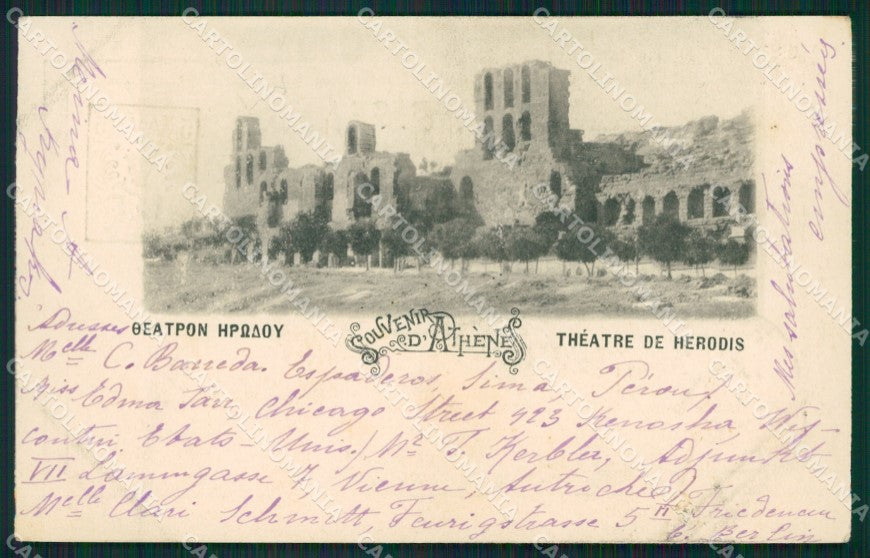 ΘΕΑΤΡΟΝ ΗΡΩΔΟΥ
SOUVENIR D'ATHÈNES
THÉATRE DE HERODIS
Mes salutations
empressés
Adresses
Melle C. Barreda. Espaderos, Lima, Pérou /
Miss Edma Tarr Chicago Street 423 Kenosha, Wis-
Etats-Unis./ Mr. T. Kerbler, Adjunkt
VII Lammgasse 7 Vienne, Autriche
Melle Clari Schmitt, Feurigstrasse 5 II Friedenau
b. Berlin
CARTOLINOMANIA